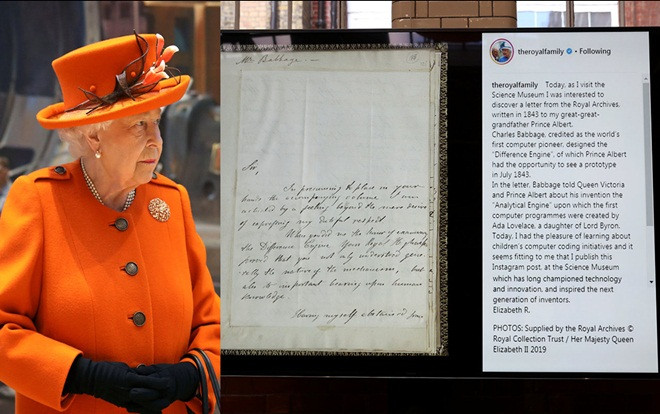 Mr Babbage
Sir,
In presuming to place in your
hands the accompanying volume I am
actuated by a feeling beyond the mere desire
of expressing my dutiful respect.
When your
the Difference Engine Your Royal Highness
proved that you not only understood
the nature of the mechanism, but
also its important bearing upon human
knowledge.
Having myself
theroyalfamily • Following
theroyalfamily Today, as I visit the
Science Museum I was interested to
discover a letter from the Royal Archives,
written in 1843 to my great-great-
grandfather Prince Albert.
Charles Babbage, credited as the world's
first computer pioneer, designed the
"Difference Engine", of which Prince Albert
had the opportunity to see a prototype
in July 1843.
In the letter, Babbage told Queen Victoria
and Prince Albert about his invention the
"Analytical Engine" upon which the first
computer programmes were created by
Ada Lovelace, a daughter of Lord Byron.
Today, I had the pleasure of learning about
children's computer coding initiatives and it
seems fitting to me that I publish this
Instagram post, at the Science Museum
which has long championed technology
and innovation, and inspired the next
generation of inventors.
Elizabeth R.
PHOTOS: Supplied by the Royal Archives ©
Royal Collection Trust / Her Majesty Queen
Elizabeth II 2019